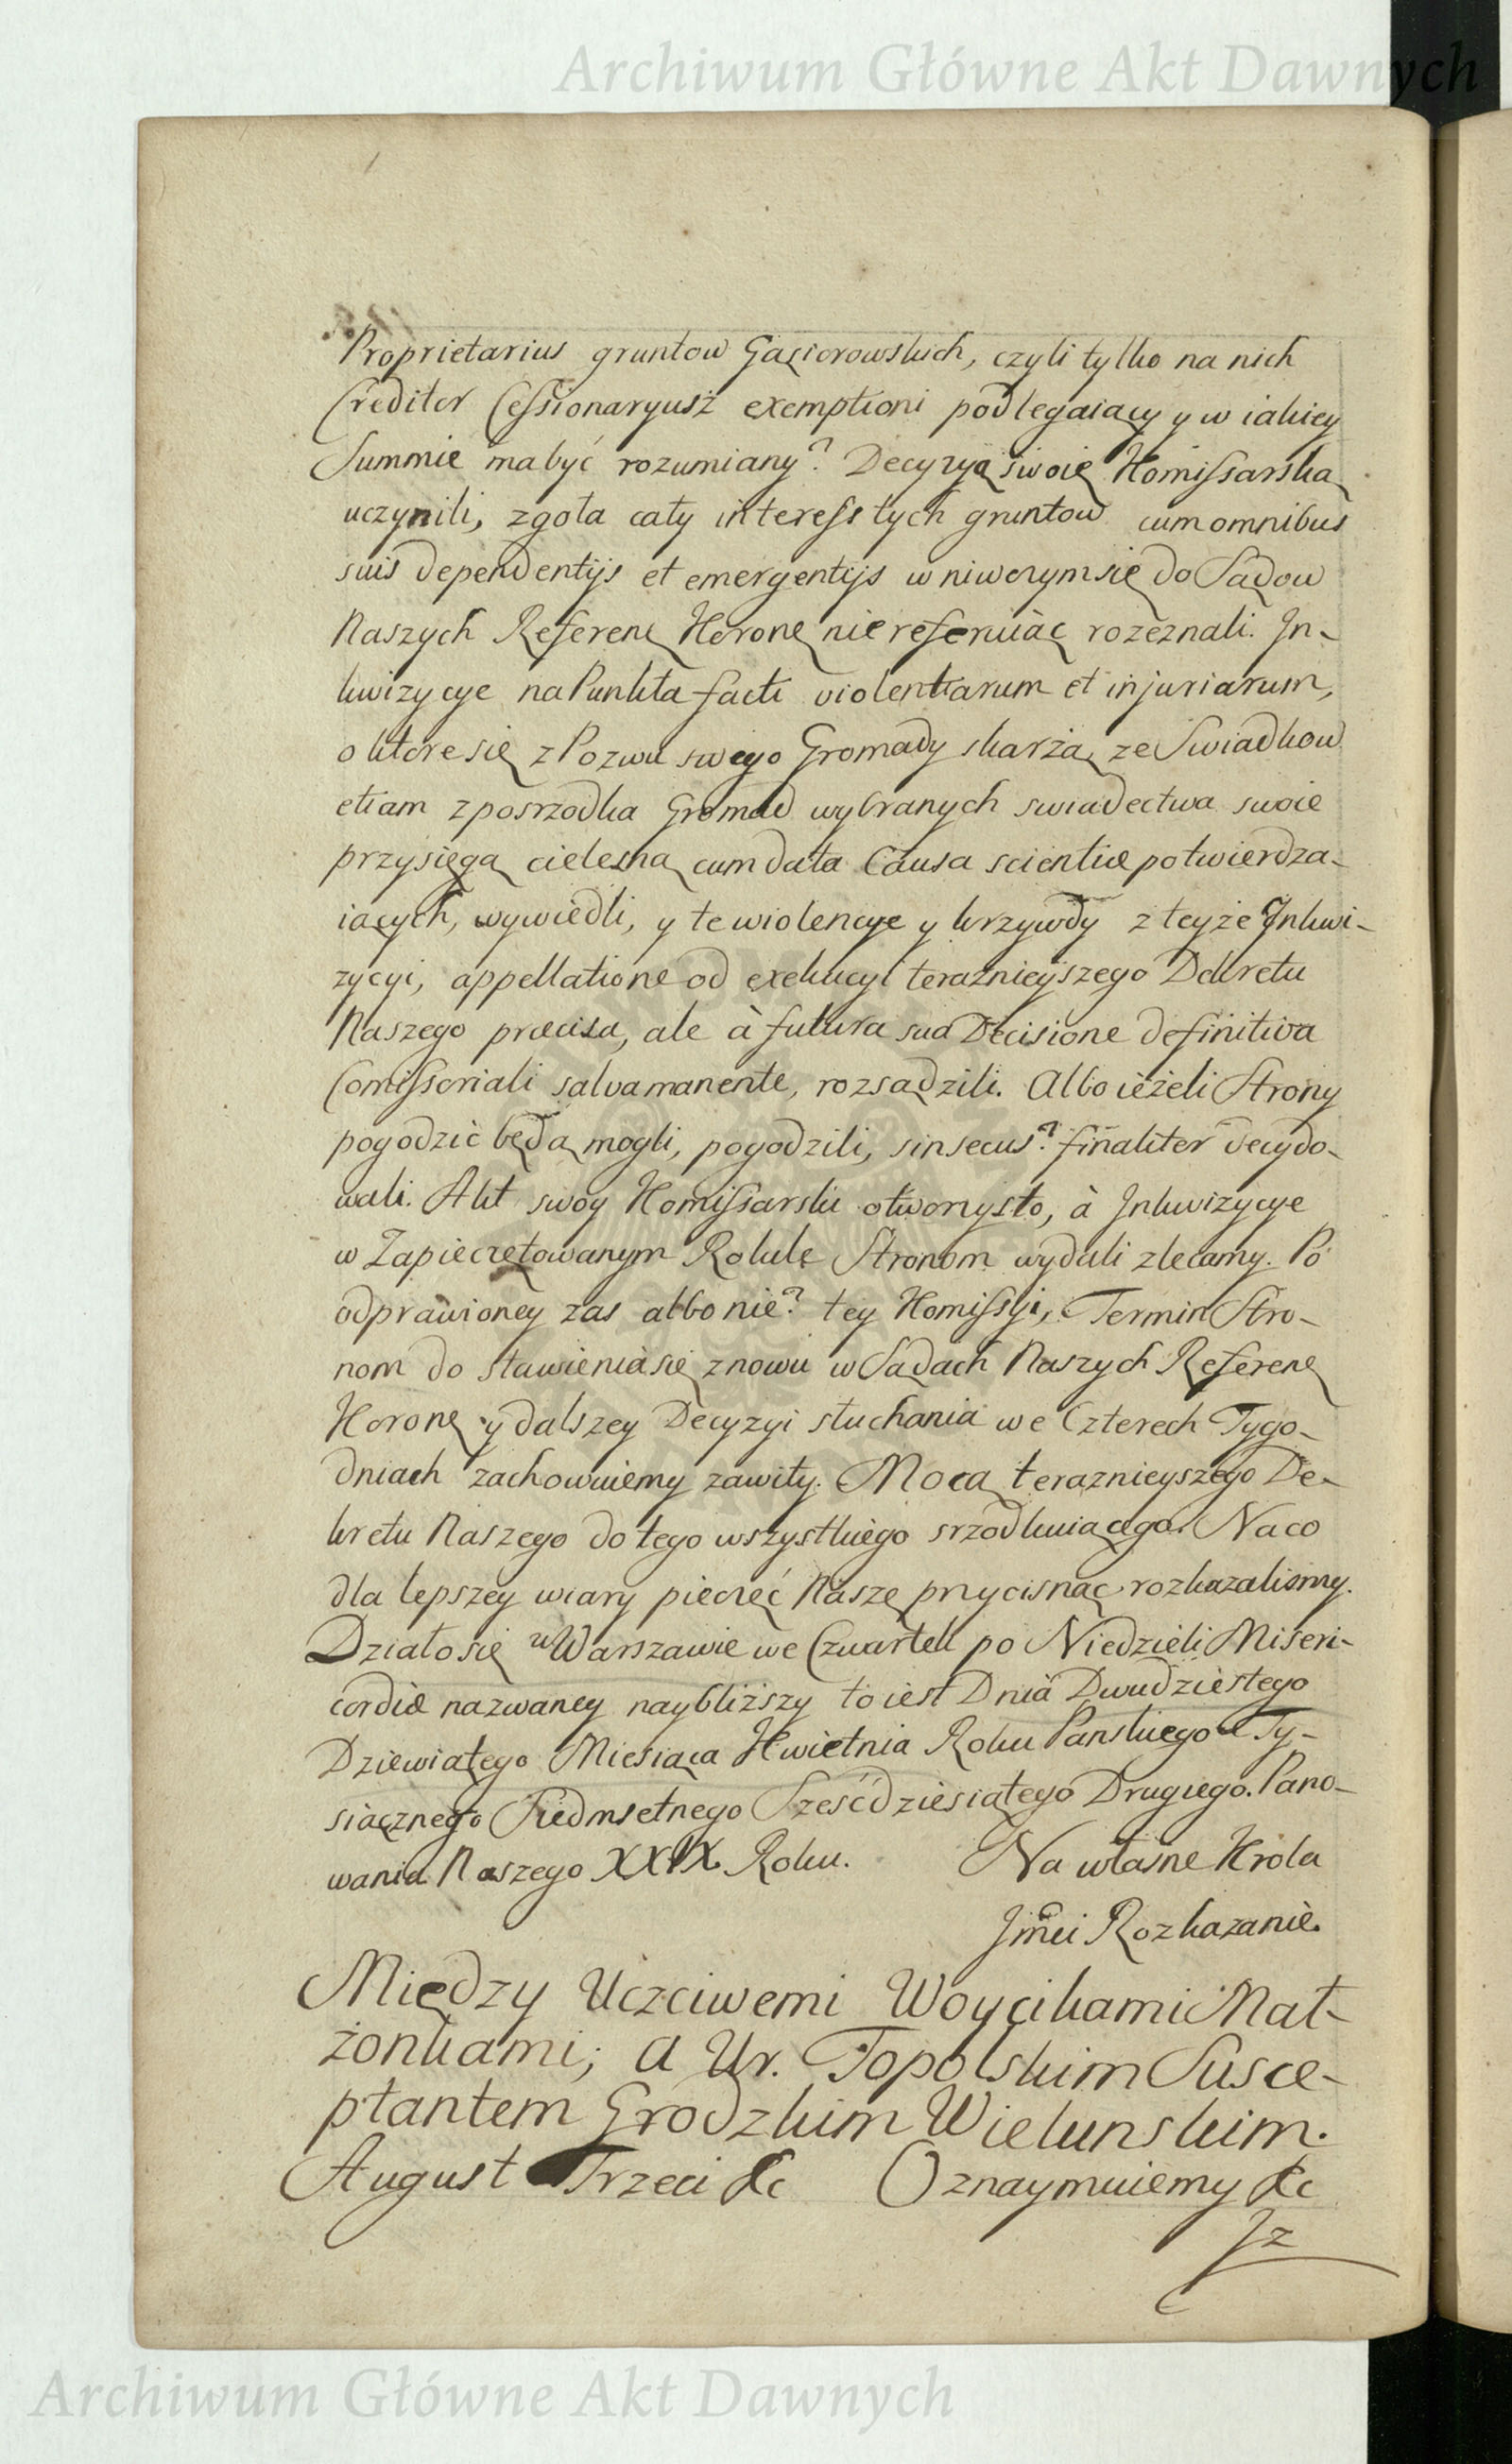 Archiwum Główne Akt Dawnych
Proprietarius gruntow Gąsiorowskich, czyli tylko na nich
Creditor Cessionaryusz exemptioni podlegaiący y w iakiey
Summie ma być rozumiany? Decyzyą swoię Kommissarską
uczynili, zgoła cały interess tych gruntow cum omnibus
suis dependentijs et emergentijs w niwczym się do Sądow
Naszych Referen Koronę nie referuiąc rozeznali. In-
kwizycye na Punkta facti violentiarum et injuriarum,
o ktore się z Pozwu swego Gromady skarżą, ze Swiadkow
etiam z posrzodka Gromad wybranych swiadectwa swoie
przysięgą cielesną cum data Causa scientiæ potwierdza-
iących, wywiedli, y te wiolencye y krzywdy z teyże Inkwi-
zycyi, appellatione od exekucyi teraznieyszego Dekretu
Naszego præcisa, ale à futura sua Decisione definitiva
Comissoriali salva manente, rozsądzili. Albo ieżeli Strony
pogodzić będą mogli, pogodzili, sin secus? finaliter decydo-
wali. Akt swoy Komissarski otworzysto, à Inkwizycye
w Zapieczętowanym Rotule Stronom wydali zlecamy. Po
odprawioney zas albo nie? tey Komissyi, Termin Stro-
nom do stawienia się znowu w Sądach Naszych Referen
Koronę y dalszey Decyzyi słuchania we Czterech Tygo-
dniach zachowuiemy zawity. Mocą teraznieyszego De-
kretu Naszego do tego wszystkiego srzodkuiącego. Na co
dla lepszey wiary pieczęć Naszę przycisnąc rozkazalismy.
Działo się w Warszawie we Czwartek po Niedzieli Miseri-
cordiæ nazwaney naybliższy to iest Dnia Dwudziestego
Dziewiątego Miesiąca Kwietnia Roku Panskiego Ty-
siącznego Siedmsetnego Sześćdziesiątego Drugiego. Pano-
wania Naszego XXIX Roku. Na własne Krola
Jmci Rozkazanie.
Między Uczciwemi Woycikami Mał-
żonkami; a Ur. Topolskim Susce-
ptantem Grodzkim Wielunskim.
August Trzeci &c Oznaymuiemy &c
Iz
Archiwum Główne Akt Dawnych